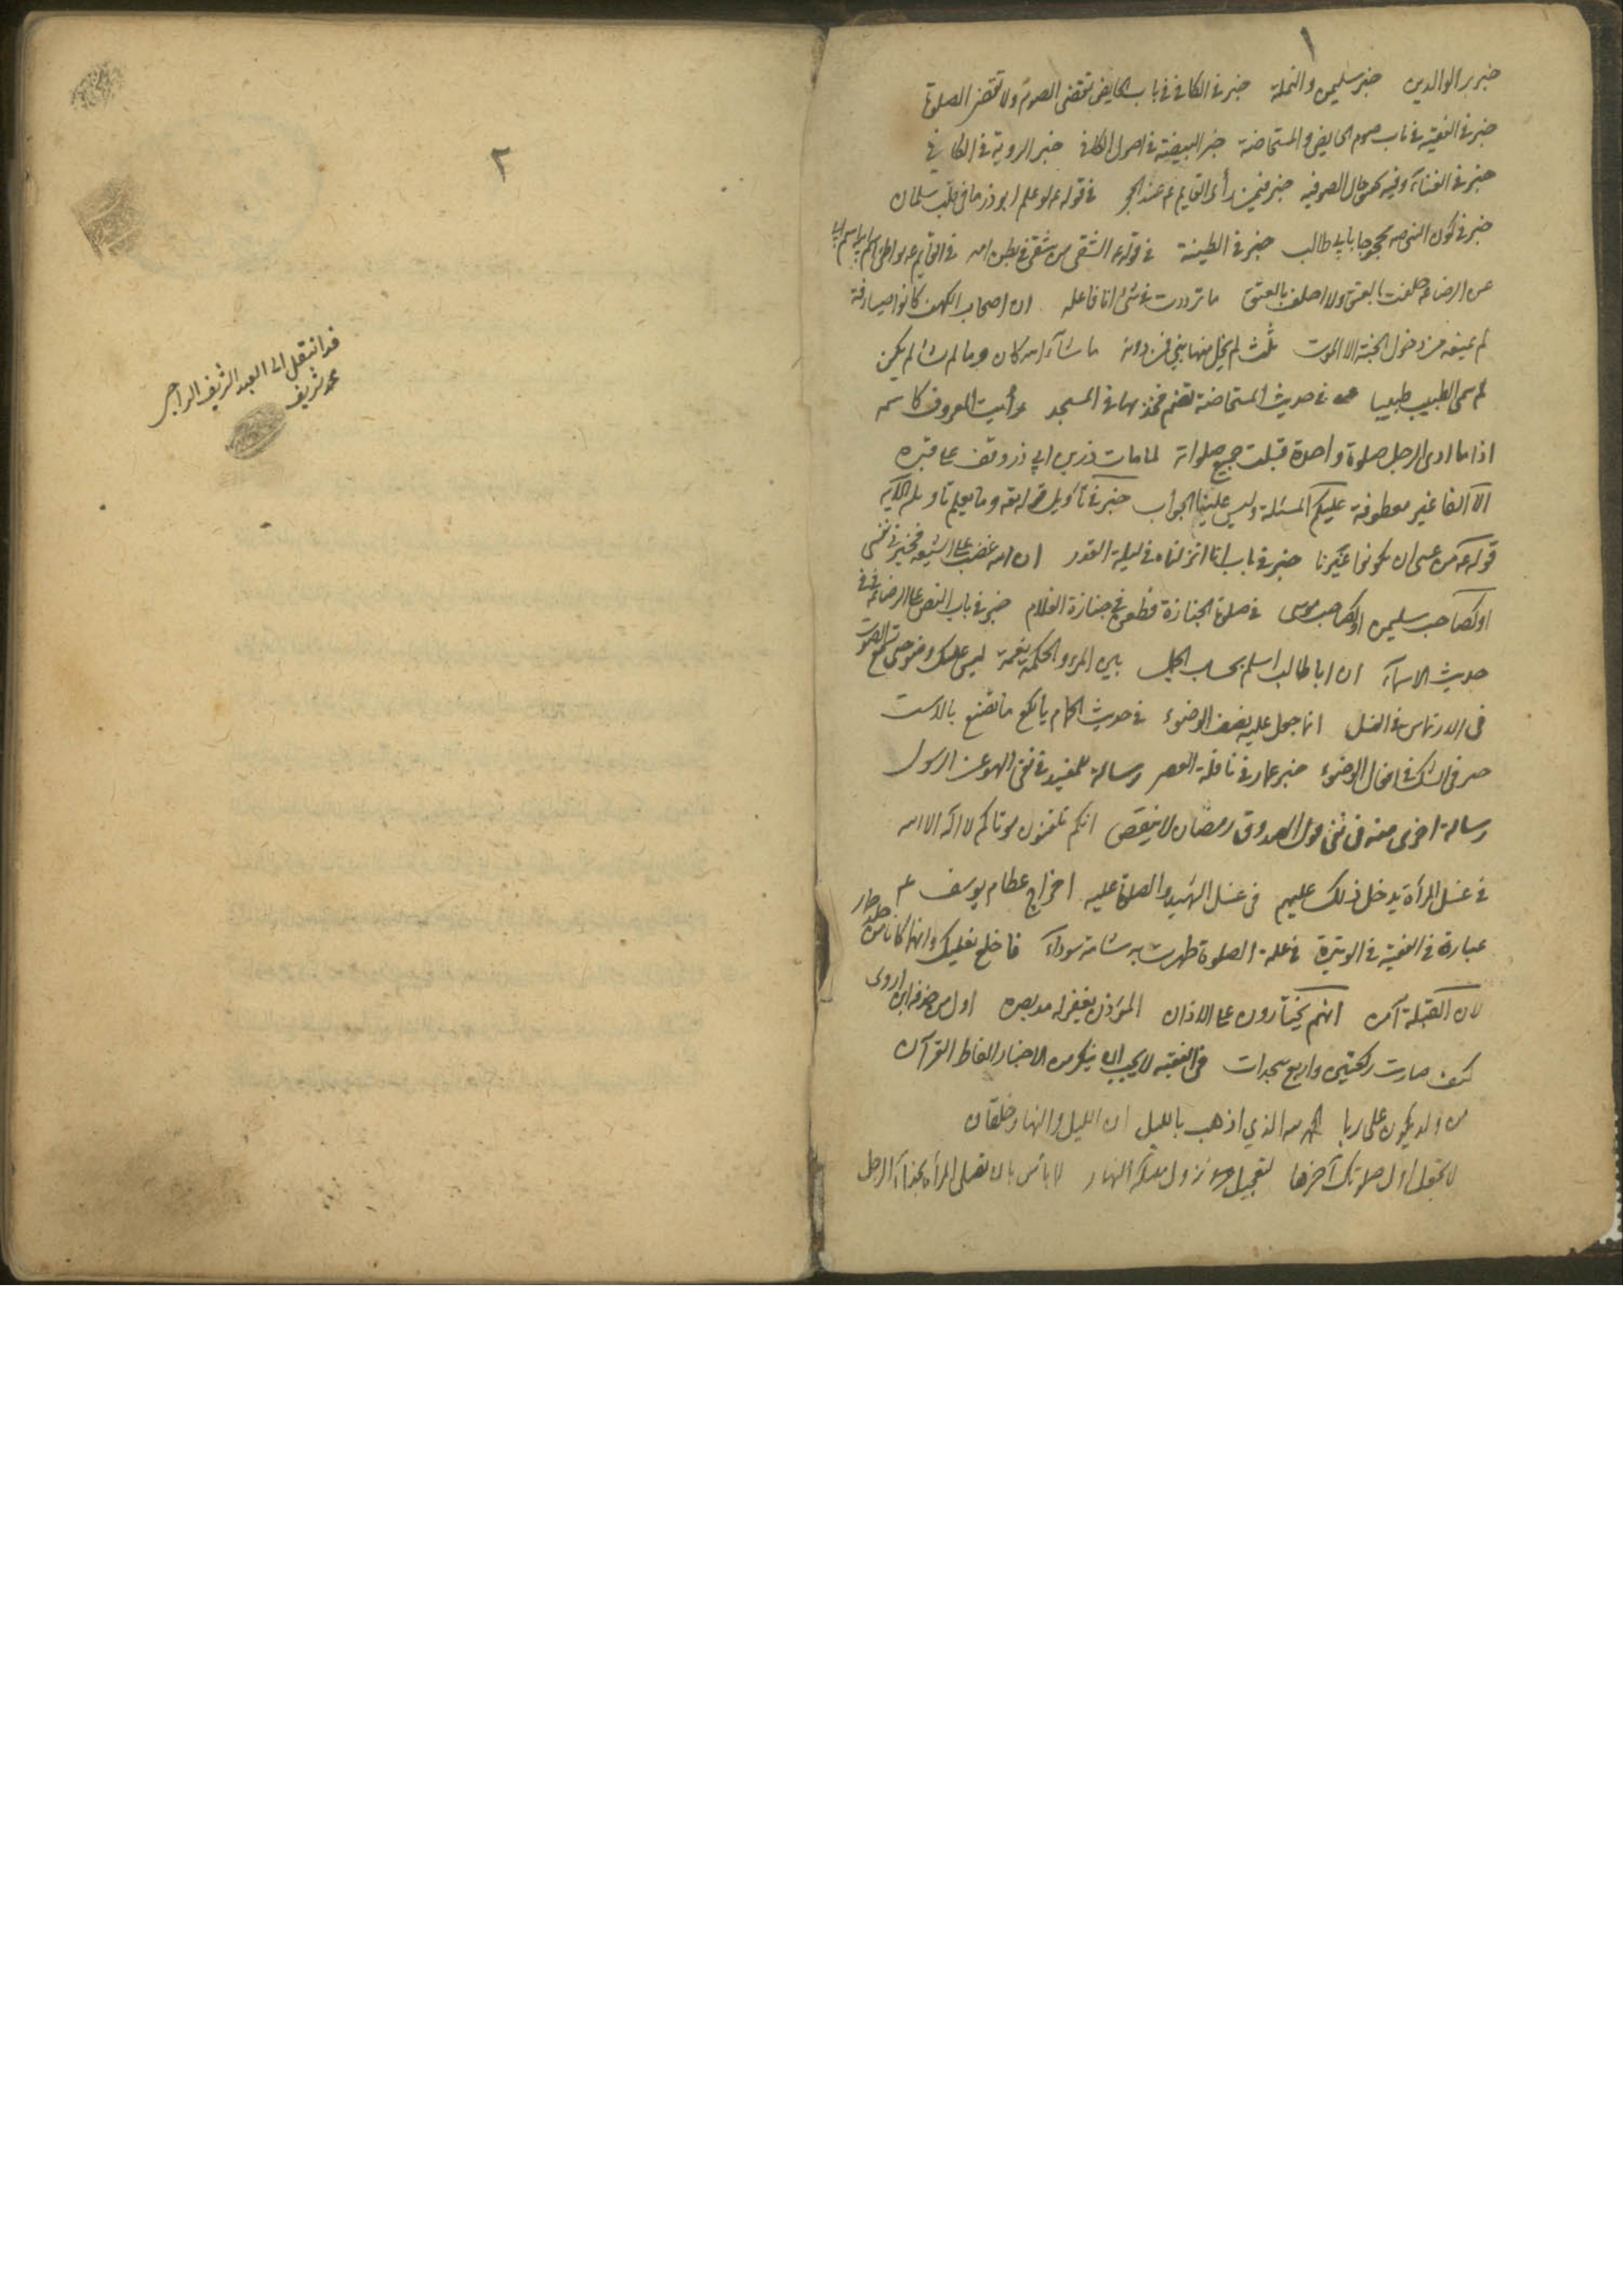 ١
خبر بر الوالدين خبر سليمن والنملة خبر في الكافي في باب الحايض تقضى الصوم ولا تقضى الصلوة
خبر في الفقيه في باب صوم الحايض والمستحاضة خبر البيضة في اصول الكافي خبر الروية في الكافي
خبر في الغناء وفيه حال الصوفيه خبر فيمن رأى القايم عه عند الحجر في قوله عه لو علم ابو ذر ما في قلب سلمان
خبر في كون النبي صه محجوجا بابي طالب خبر في الطينة في قوله عه الشقى من شقى في بطن امه في القايم عه يواطى اسم ابيه اسم ابي
عن الرضا عه حلفت بالعتق ولا احلف بالعتق ما ترددت في شئ انا فاعله ان اصحاب الكهف كانوا صيارفة
لم يمنعه من دخول الجنة الا الموت ثلث لم يخل منها نبي فمن دونه ما شاء الله كان وما لم يشأ لم يكن
لم سمى الطبيب طبيبا في حديث المستحاضة تضم فخذيها في المسجد رأيت المعروف كاسمه
اذا ما ادى الرجل صلوة واحدة قبلت جميع صلواته لما مات ذر بن ابي ذر وقف على قبره
الا الفا غير معطوفة عليكم المسئلة وليس علينا الجواب خبر في تأويل قوله تعه وما يعلم تأويله الآية
قوله عه من عسى ان يكونوا غيرنا خبر في باب انا انزلناه في ليلة القدر ان الله غضب على الشيعة فخيرني نفسى
او لصاحب سليمن او لصاحب موسى في صلوة الجنازة فطعن في جنازة الغلام خبر في باب النص على الرضا عه
حديث الاسماء ان ابا طالب اسلم بحساب الجمل بين المرء والحكمة نعمة ليس عليك وضوء حتى تسمع الصوت
في الارتماس في الغسل انما جعل عليه نصف الوضوء في حديث الحمام يا لكع ما تصنع بالاست
في الشك في افعال الوضوء خبر عمار في نافلة العصر رسالة للمفيد في نفى السهو عن الرسول
رسالة اخرى منه في نفى قول الصدوق رمضان لا ينقص انكم تلقنون موتاكم لا اله الا الله
في غسل المرأة يدخل ذلك عليهم في غسل الشهيد والصلوة عليه اخراج عظام يوسف عه
عبارة في الفقيه في الوتيرة في علة الصلوة ظهرت به شامة سوداء فاخلع نعليك وانها كانا من جلد حمار
لان القبلة آمن انهم يختارون على الاذان المؤذن يغفر له مد بصره اول من حرفه ابن اروى
كيف صارت ركعتين واربع سجدات في الفقيه لا يجب الا ينكر من الاخبار الفاظ القرآن
الحمد لله الذي اذهب بالليل ان الليل والنهار خلقان
لا تجعل اول صلوتك آخرها لتعجيل نزول ملائكة النهار لا بأس بان تصلى المرأة بحذاء الرجل
٢
قد انتقل الى العبد الشريف الراجى
محمد شريف